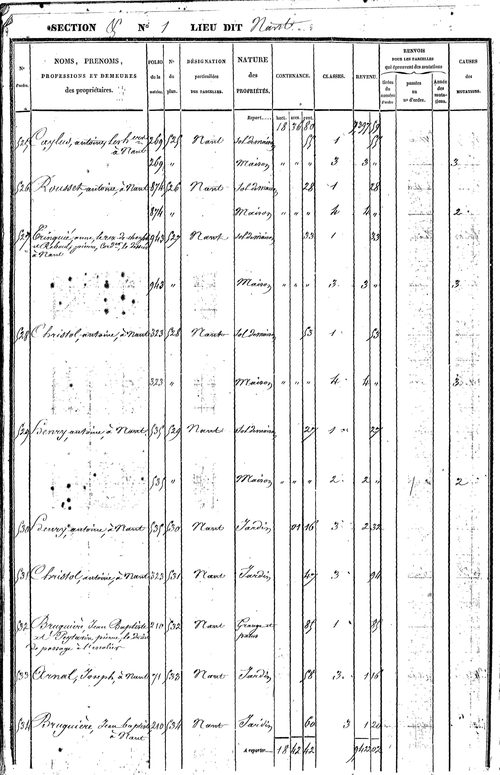 SECTION G N° 1 LIEU DIT Nant
N° d'ordre.
NOMS, PRENOMS, PROFESSIONS ET DEMEURES des propriétaires.
FOLIO de la matrice.
N° du plan.
DÉSIGNATION particulière DES PARCELLES.
NATURE des PROPRIÉTÉS.
CONTENANCE.
CLASSES.
REVENU.
RENVOIS POUR LES PARCELLES qui éprouvent des mutations
CAUSES des MUTATIONS.
hect. ares. cent.
Report.... 18 36 80 9397 59
525 Caylus, antoine, 269 525 Nant Sol de maison 1
à Nant
269 " Maison " " " 3 3 " 3
526 Rousset, antoine, à Nant 874 526 Nant Sol de maison 28 1 28
874 " Maison " " " 4 4 " 2
527 943 527 Nant Sol de maison 33 1 33
à Nant
943 " Maison " " " 3 3 " 3
528 Christol, antoine, à Nant 323 528 Nant Sol de maison 53 1 53
323 " Maison " " " 4 4 " 3
529 Henry, antoine, à Nant 535 529 Nant Sol de maison 27 1 27
535 " Maison " " " 2 2 " 2
530 Henry, antoine, à Nant 535 530 Nant Jardin 01 16 3 2 32
531 Christol, antoine, à Nant 323 531 Nant Jardin 47 3 94
532 Bruguière, Jean Baptiste 210 532 Nant Grange et 85 1 85
patus
de passage à l'escalier
533 Arnal, Joseph, à Nant 71 533 Nant Jardin 58 3 1 16
534 Bruguière, Jean baptiste 210 534 Nant Jardin 60 3 1 20
à Nant
A reporter.... 18 42 42 9422 02